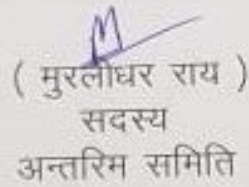 ( मुरलीधर राय )
सदस्य
अन्तरिम समिति